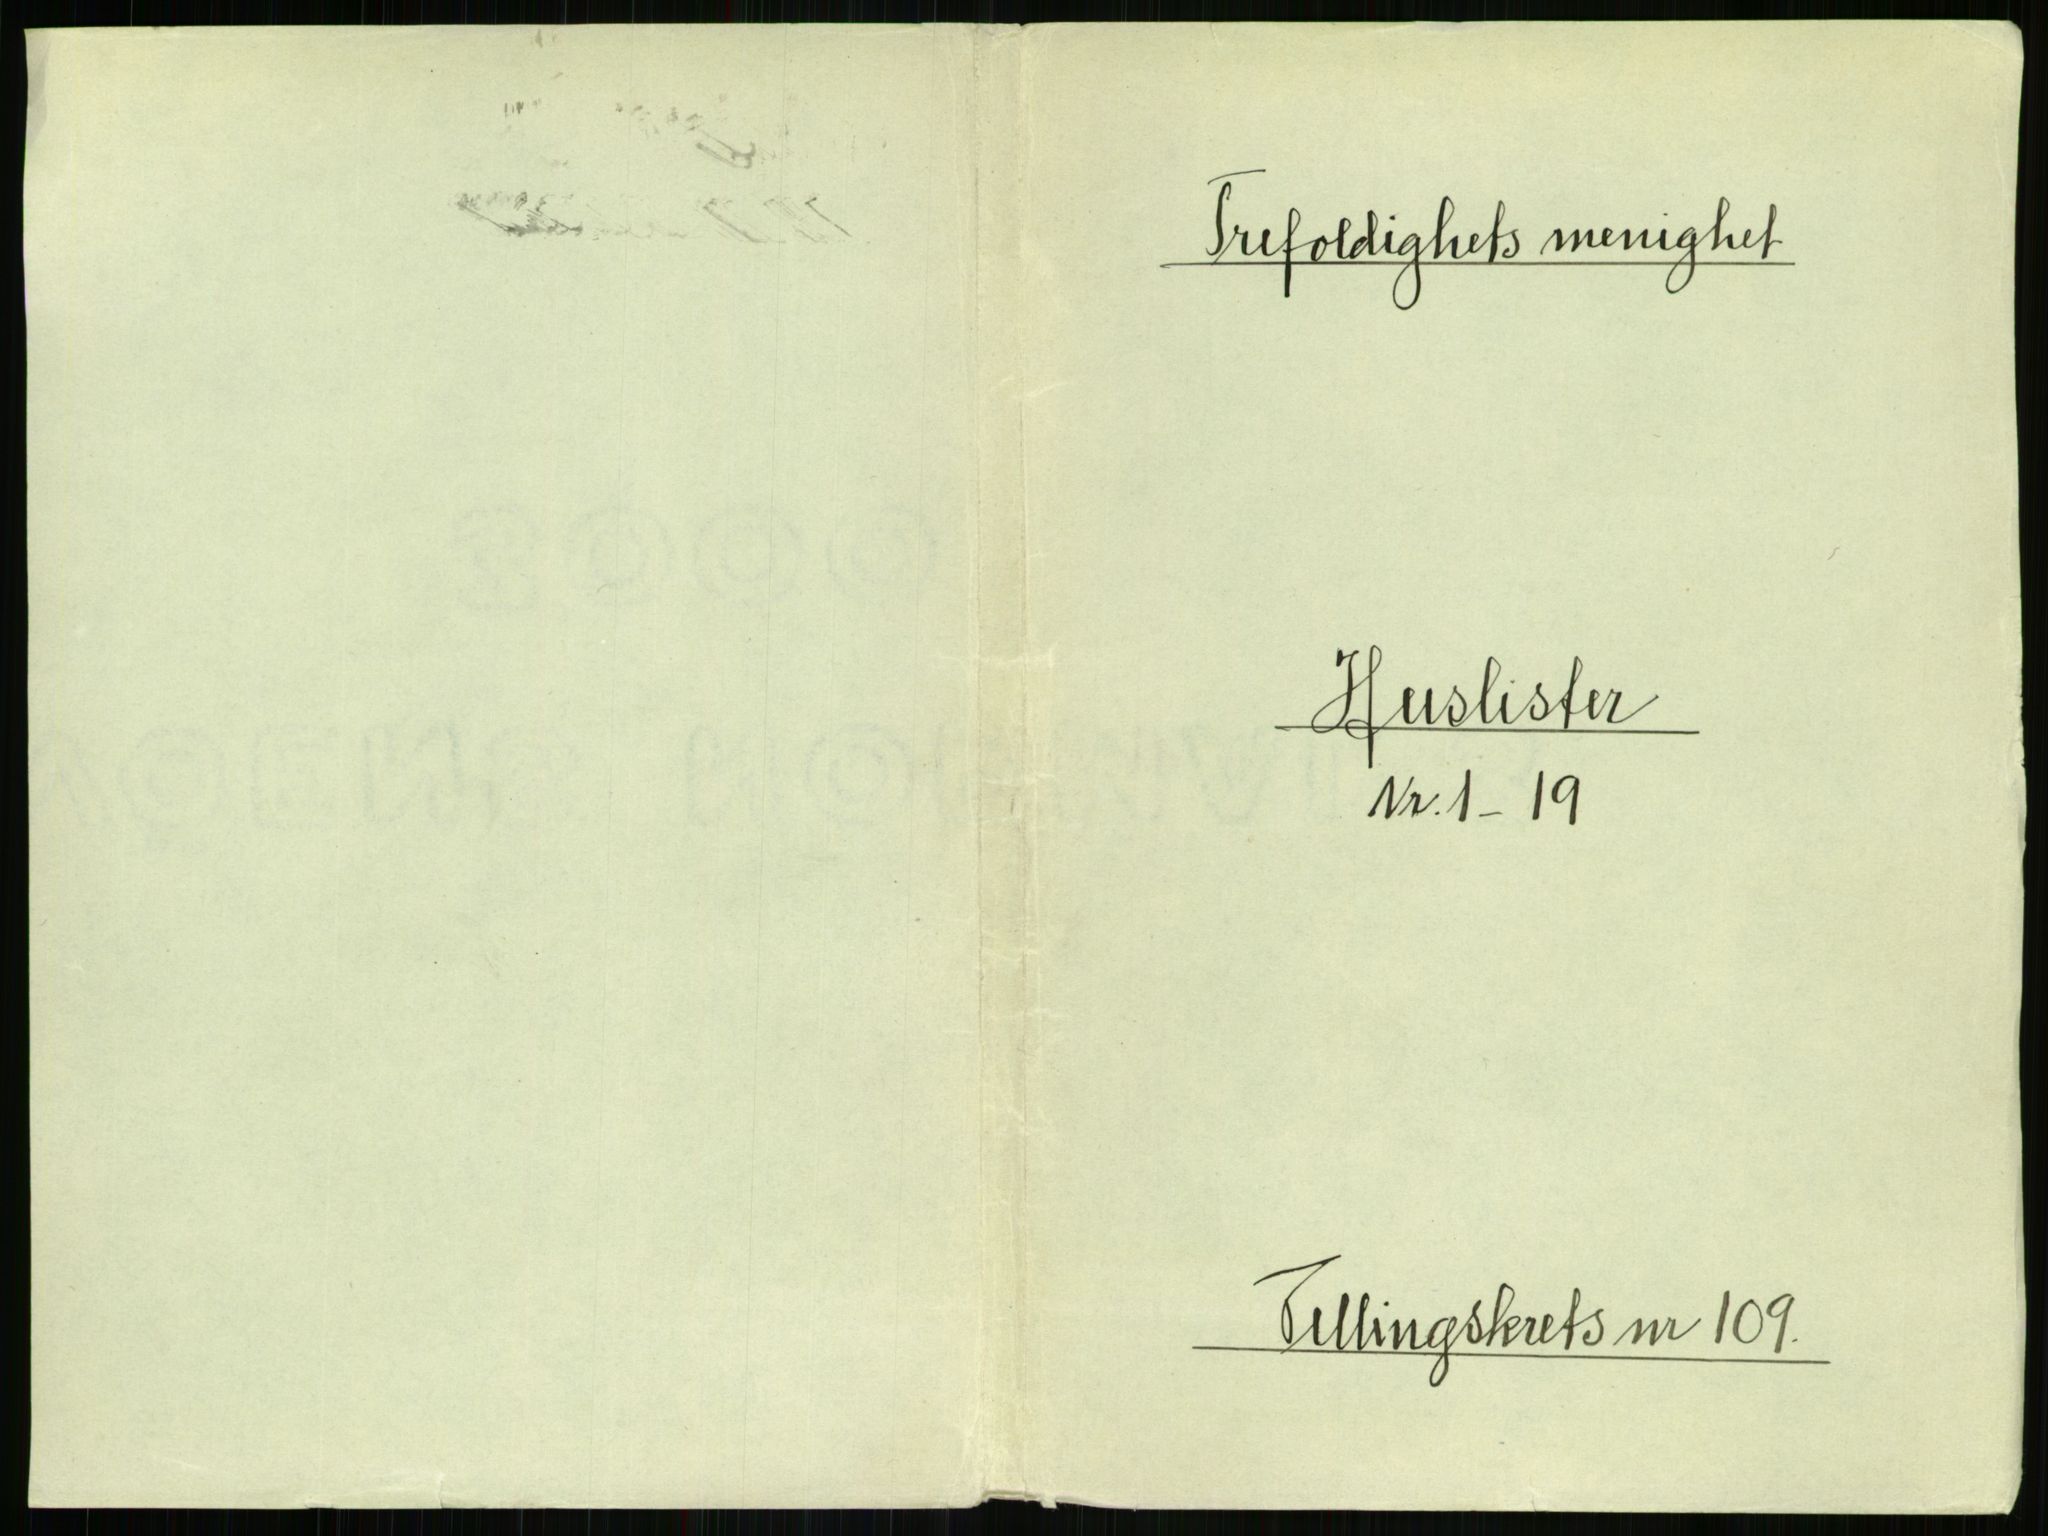 Trefoldighets menighet
Huslister
Nr. 1 - 19
Tellingskrets nr 109.